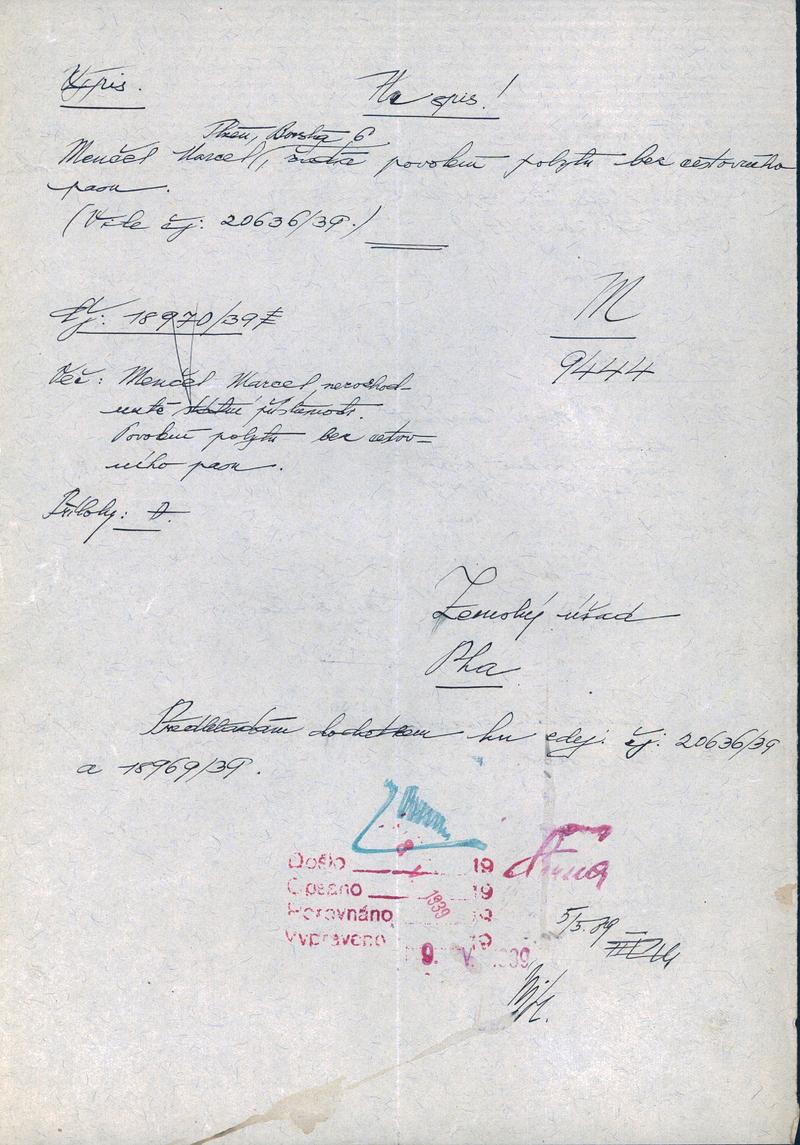 Výpis.
Na spis!
Plzeň, Borská 6
Menčel Marcel, žádá povolení pobytu bez cestovního
pasu.
(Viz le čj: 20636/39.)
Čj: 18970/39
M
9444
Věc: Menčel Marcel, nerozhod-
nuté státní příslušnosti.
Povolení pobytu bez cestov=
ního pasu.
Přílohy: 0.
Zemský úřad
Pha
Předkládám dodatkem ku zdej. čj: 20636/39
a 18969/39.
Došlo 8 19
Opsáno 19
1939
Porovnáno 19
Vypraveno 19
9. V. 1939
5/5.39